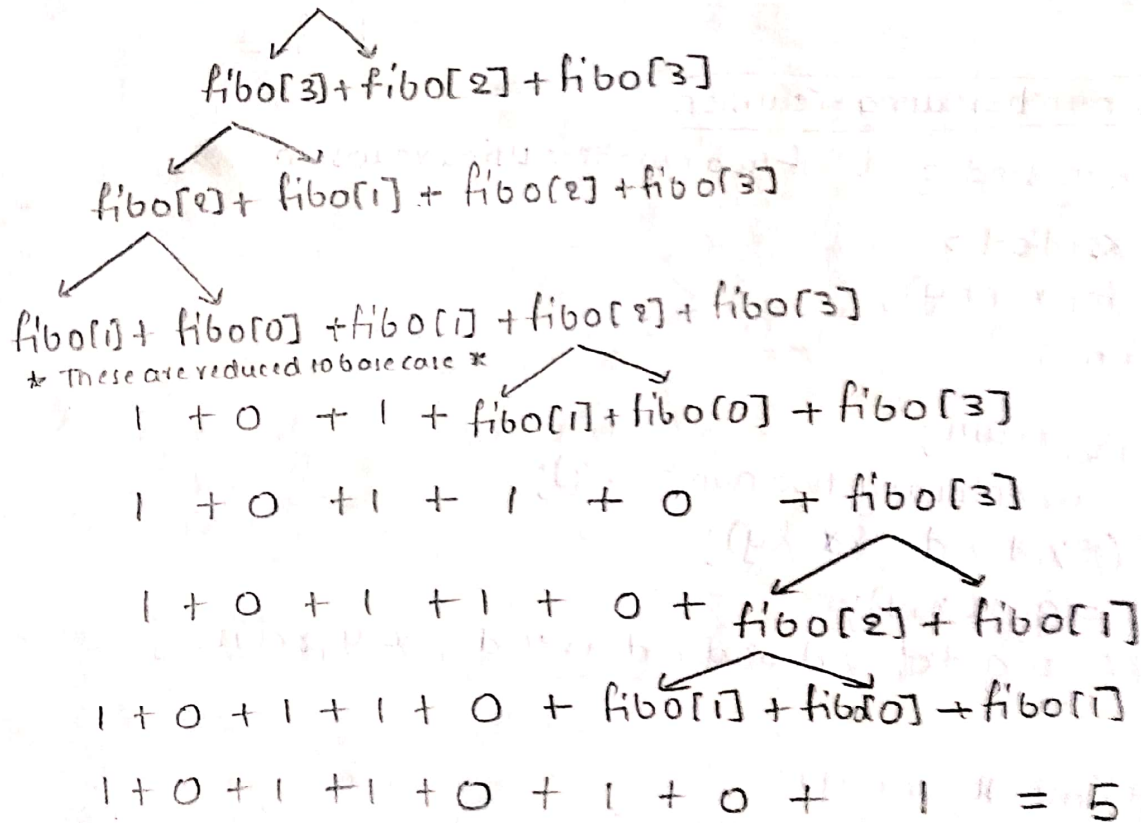 fibo[3]+ fibo[2] + fibo[3]
fibo[2]+ fibo[1] + fibo[2] +fibo[3]
fibo[1]+ fibo[0] +fibo[1] +fibo[2]+ fibo[3]
* These are reduced to base case *
1 + 0 + 1 + fibo[1]+ fibo[0] + fibo[3]
1 + 0 +1 + 1 + 0 + fibo[3]
1 + 0 + 1 +1 + 0 + fibo[2]+ fibo[1]
1 + 0 + 1 + 1 + 0 + fibo[1] + fibo[0] + fibo[1]
1 + 0 + 1 +1 + 0 + 1 + 0 + 1 = 5